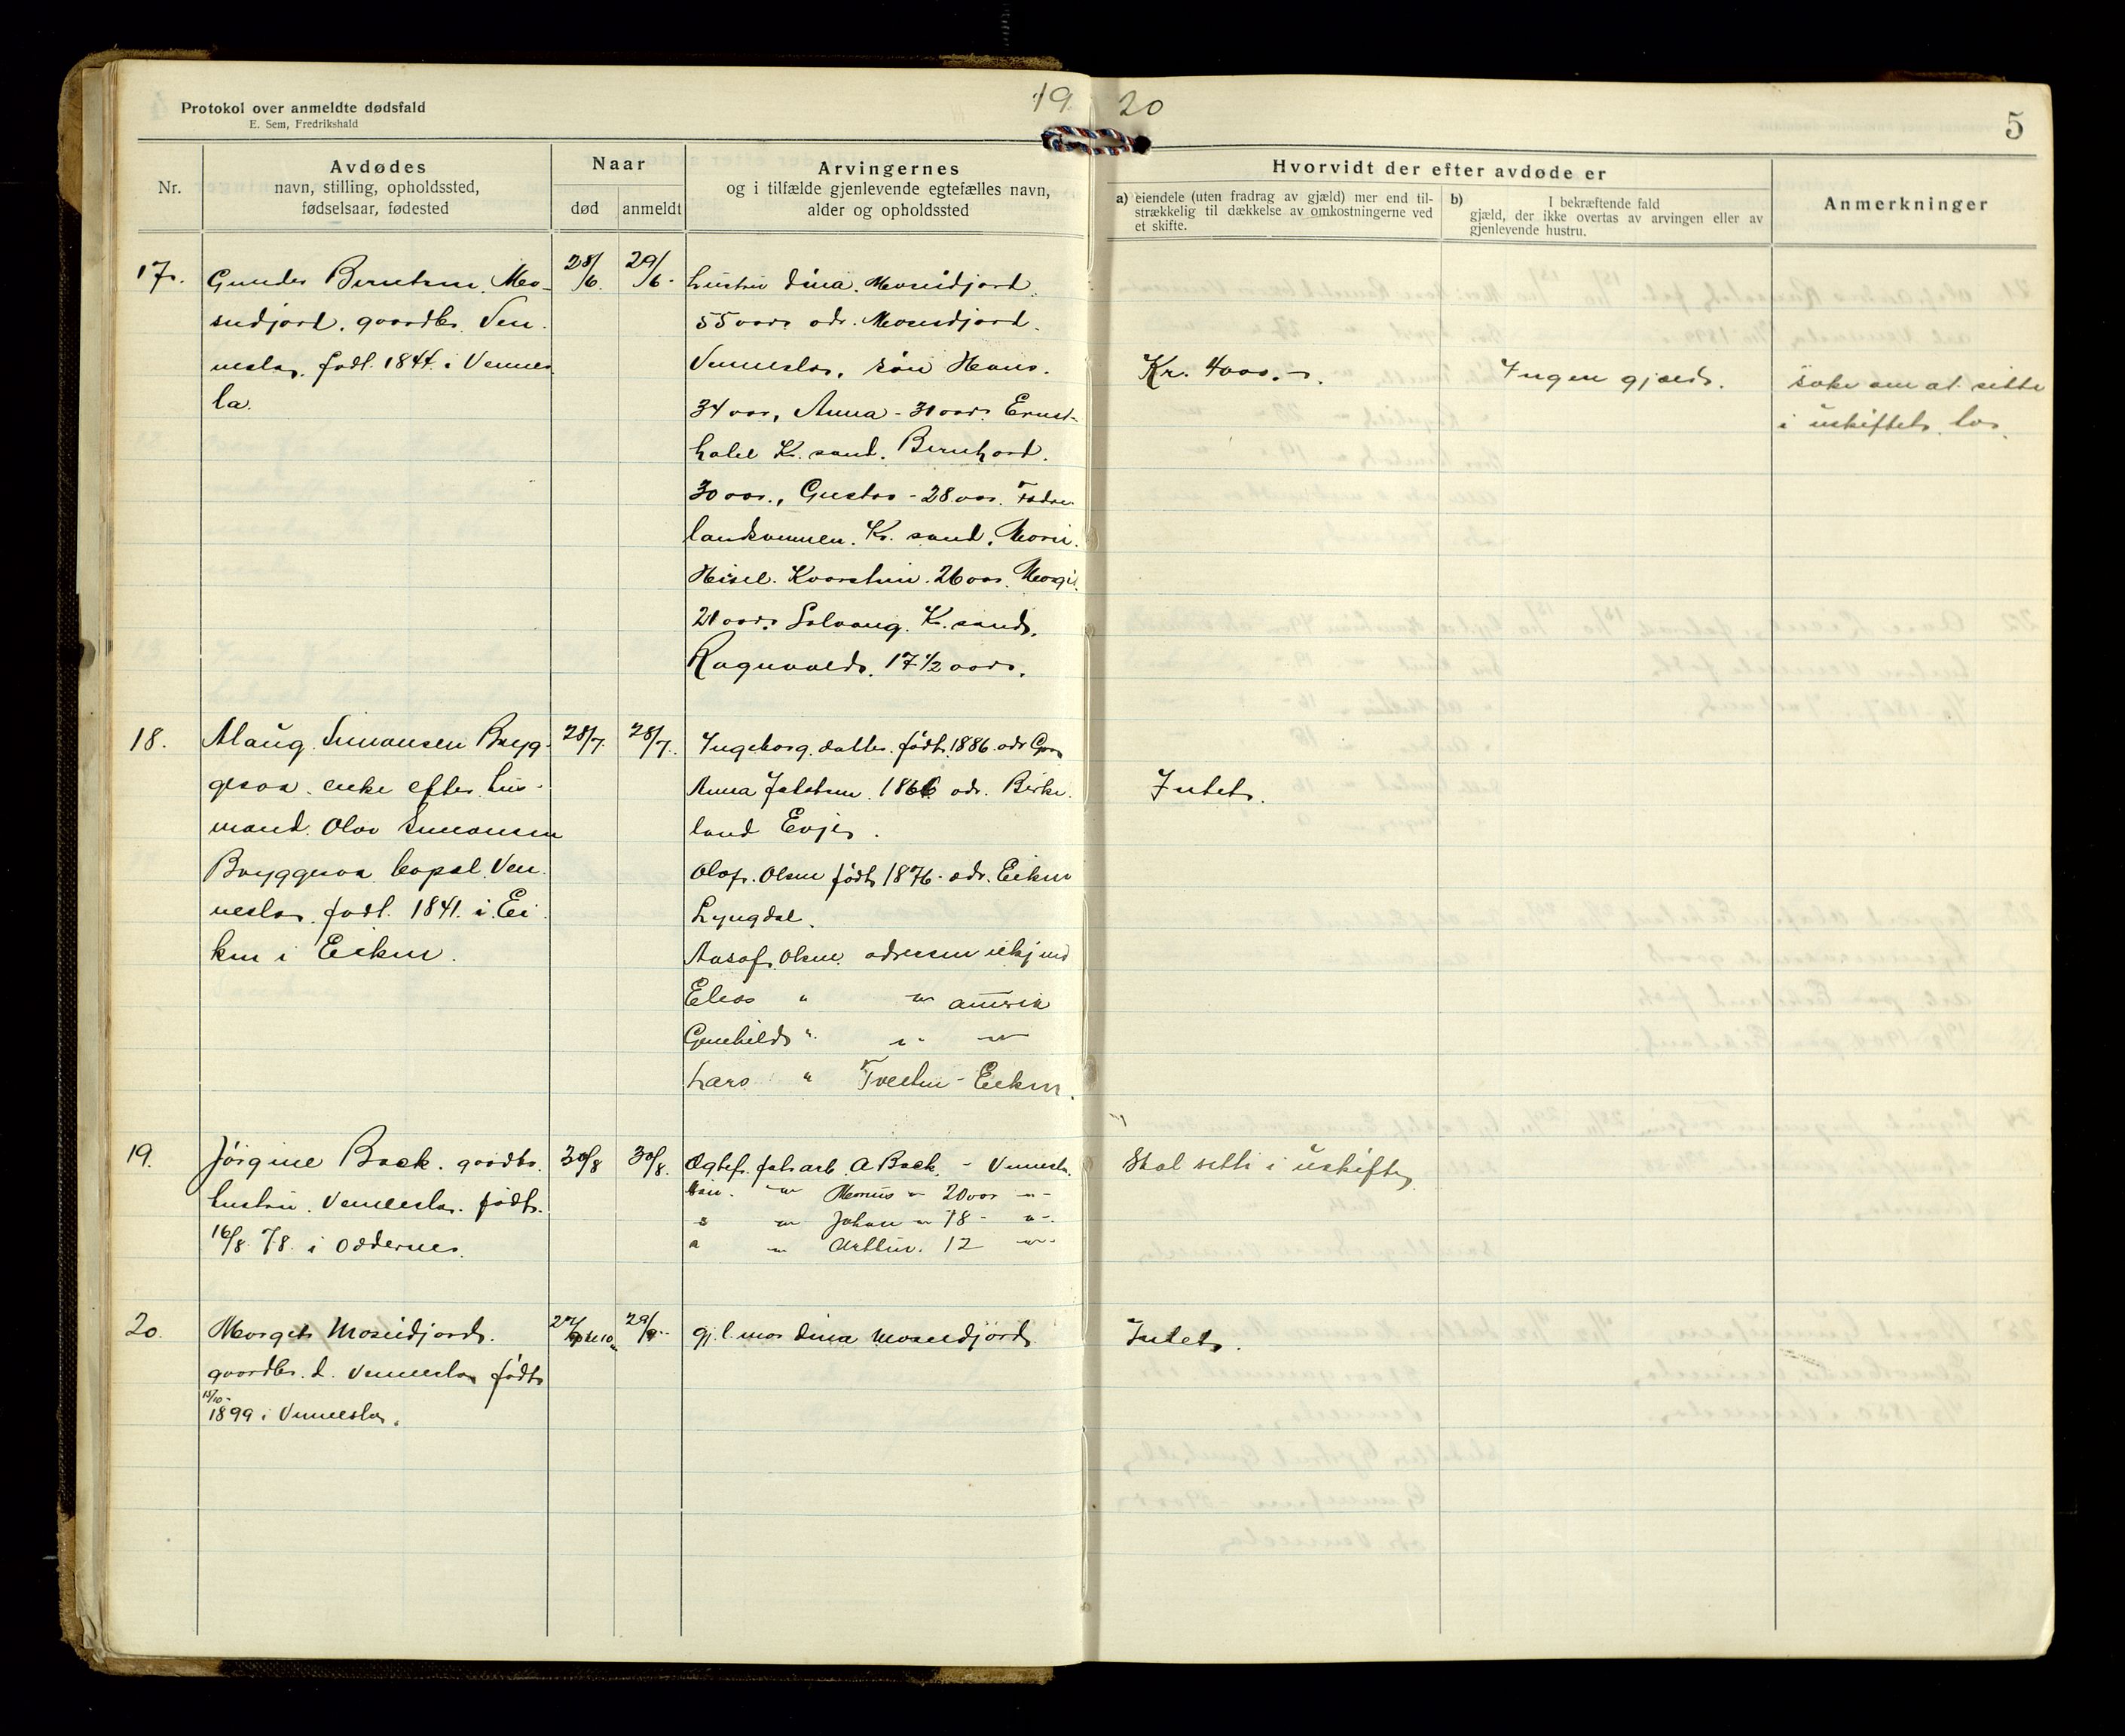 Protokol over anmeldte dødsfald
E. Sem, Fredrikshald
19 20
5
Nr.
Avdødes
navn, stilling, opholdssted,
fødselsaar, fødested
Naar
død
anmeldt
Arvingernes
og i tilfælde gjenlevende egtefælles navn,
alder og opholdssted
Hvorvidt der efter avdøde er
a) eiendele (uten fradrag av gjæld) mer end til-
strækkelig til dækkelse av omkostningerne ved
et skifte.
b) I bekræftende fald
gjæld, der ikke overtas av arvingen eller av
gjenlevende hustru.
Anmerkninger
17.
Gunder Berntsen Mo-
seidjord. gaardbr. Ven
nesla. født. 1844. i Vennes
la.
28/6.
29/6.
hustru Dina. Moseidjord.
55 aar. adr. Moseidjord.
Vennesla. søn Hans.
34 aar, Anna - 31 aar. Ernst
hotel K. sand. Bernhard.
30 aar., Gustav - 28 aar. Fædre
landsvennen. Kr. sand.
Heisel. Kvarstein. 26 aar. Margit
21 aar. Solvang. K. sand.
Ragnvald. 17 1/2 aar.
Kr. 4000.-.
Ingen gjæld.
søke om at sitte
i uskiftet bo.
18.
Alaug. Simonsen Bryg-
gesaa. enke efter hus-
mand. Olav Simonsen
Bryggesaa bopæl. Ven
nesla. født. 1841. i Ei
ken i Eiken.
28/7.
28/7.
Ingeborg. datter. født. 1886. adr
Anna 1866 adr. Birke
land Evje.
Olaf. Olsen født 1876. adr. Eiken
Lyngdal.
Aasaf Olsen adressen ukjend
Elias " " amerika
Gunhild " " "
Lars " Tveiten - Eiken.
Intet.
19.
Jørgine Back. gaardbr.
hustru. Vennesla. født.
16/8. 78. i Oddernes.
30/8
30/8.
Egtef. fabr arb. A Back. - Vennesla
søn. " 20 aar "
" " Johan " 18 - "
" " Arthur. 12 "
Skal sitte i uskifte
20.
Margit Moseidjord.
gaardbr. d. Vennesla født
15/10-
1899 i Vennesla.
29/9
gj. l. mor Dina Moseidjord
Intet.